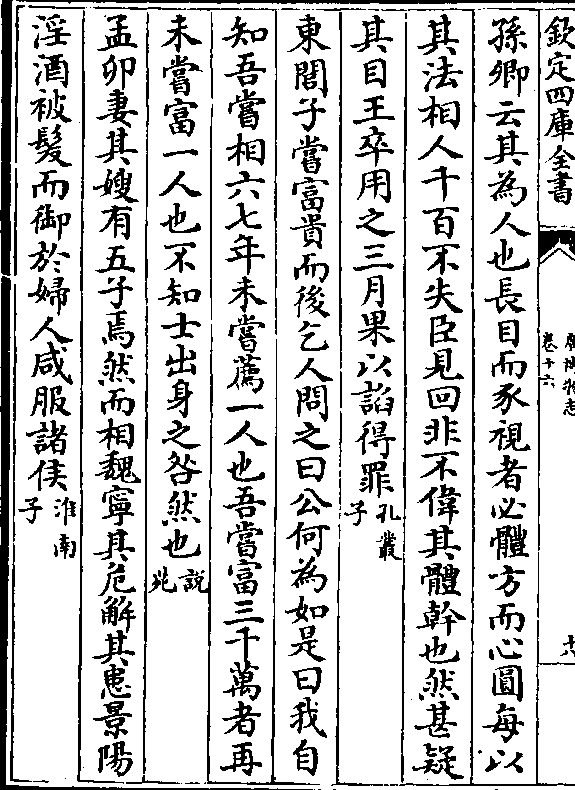 欽定四庫全書
卷十六
孫卿云其為人也長目而豕視者必體方而心圓每以
其法相人千百不失臣見回非不偉其體幹也然甚疑
其目王卒用之三月果以諂得罪孔叢子
東閭子嘗富貴而後乞人問之曰公何為如是曰我自
知吾嘗相六七年未嘗薦一人也吾嘗富三千萬者再
未嘗富一人也不知士出身之咎然也說苑
孟卯妻其嫂有五子焉然而相魏寧其危解其患景陽
淫酒被髮而御於婦人威服諸侯淮南子